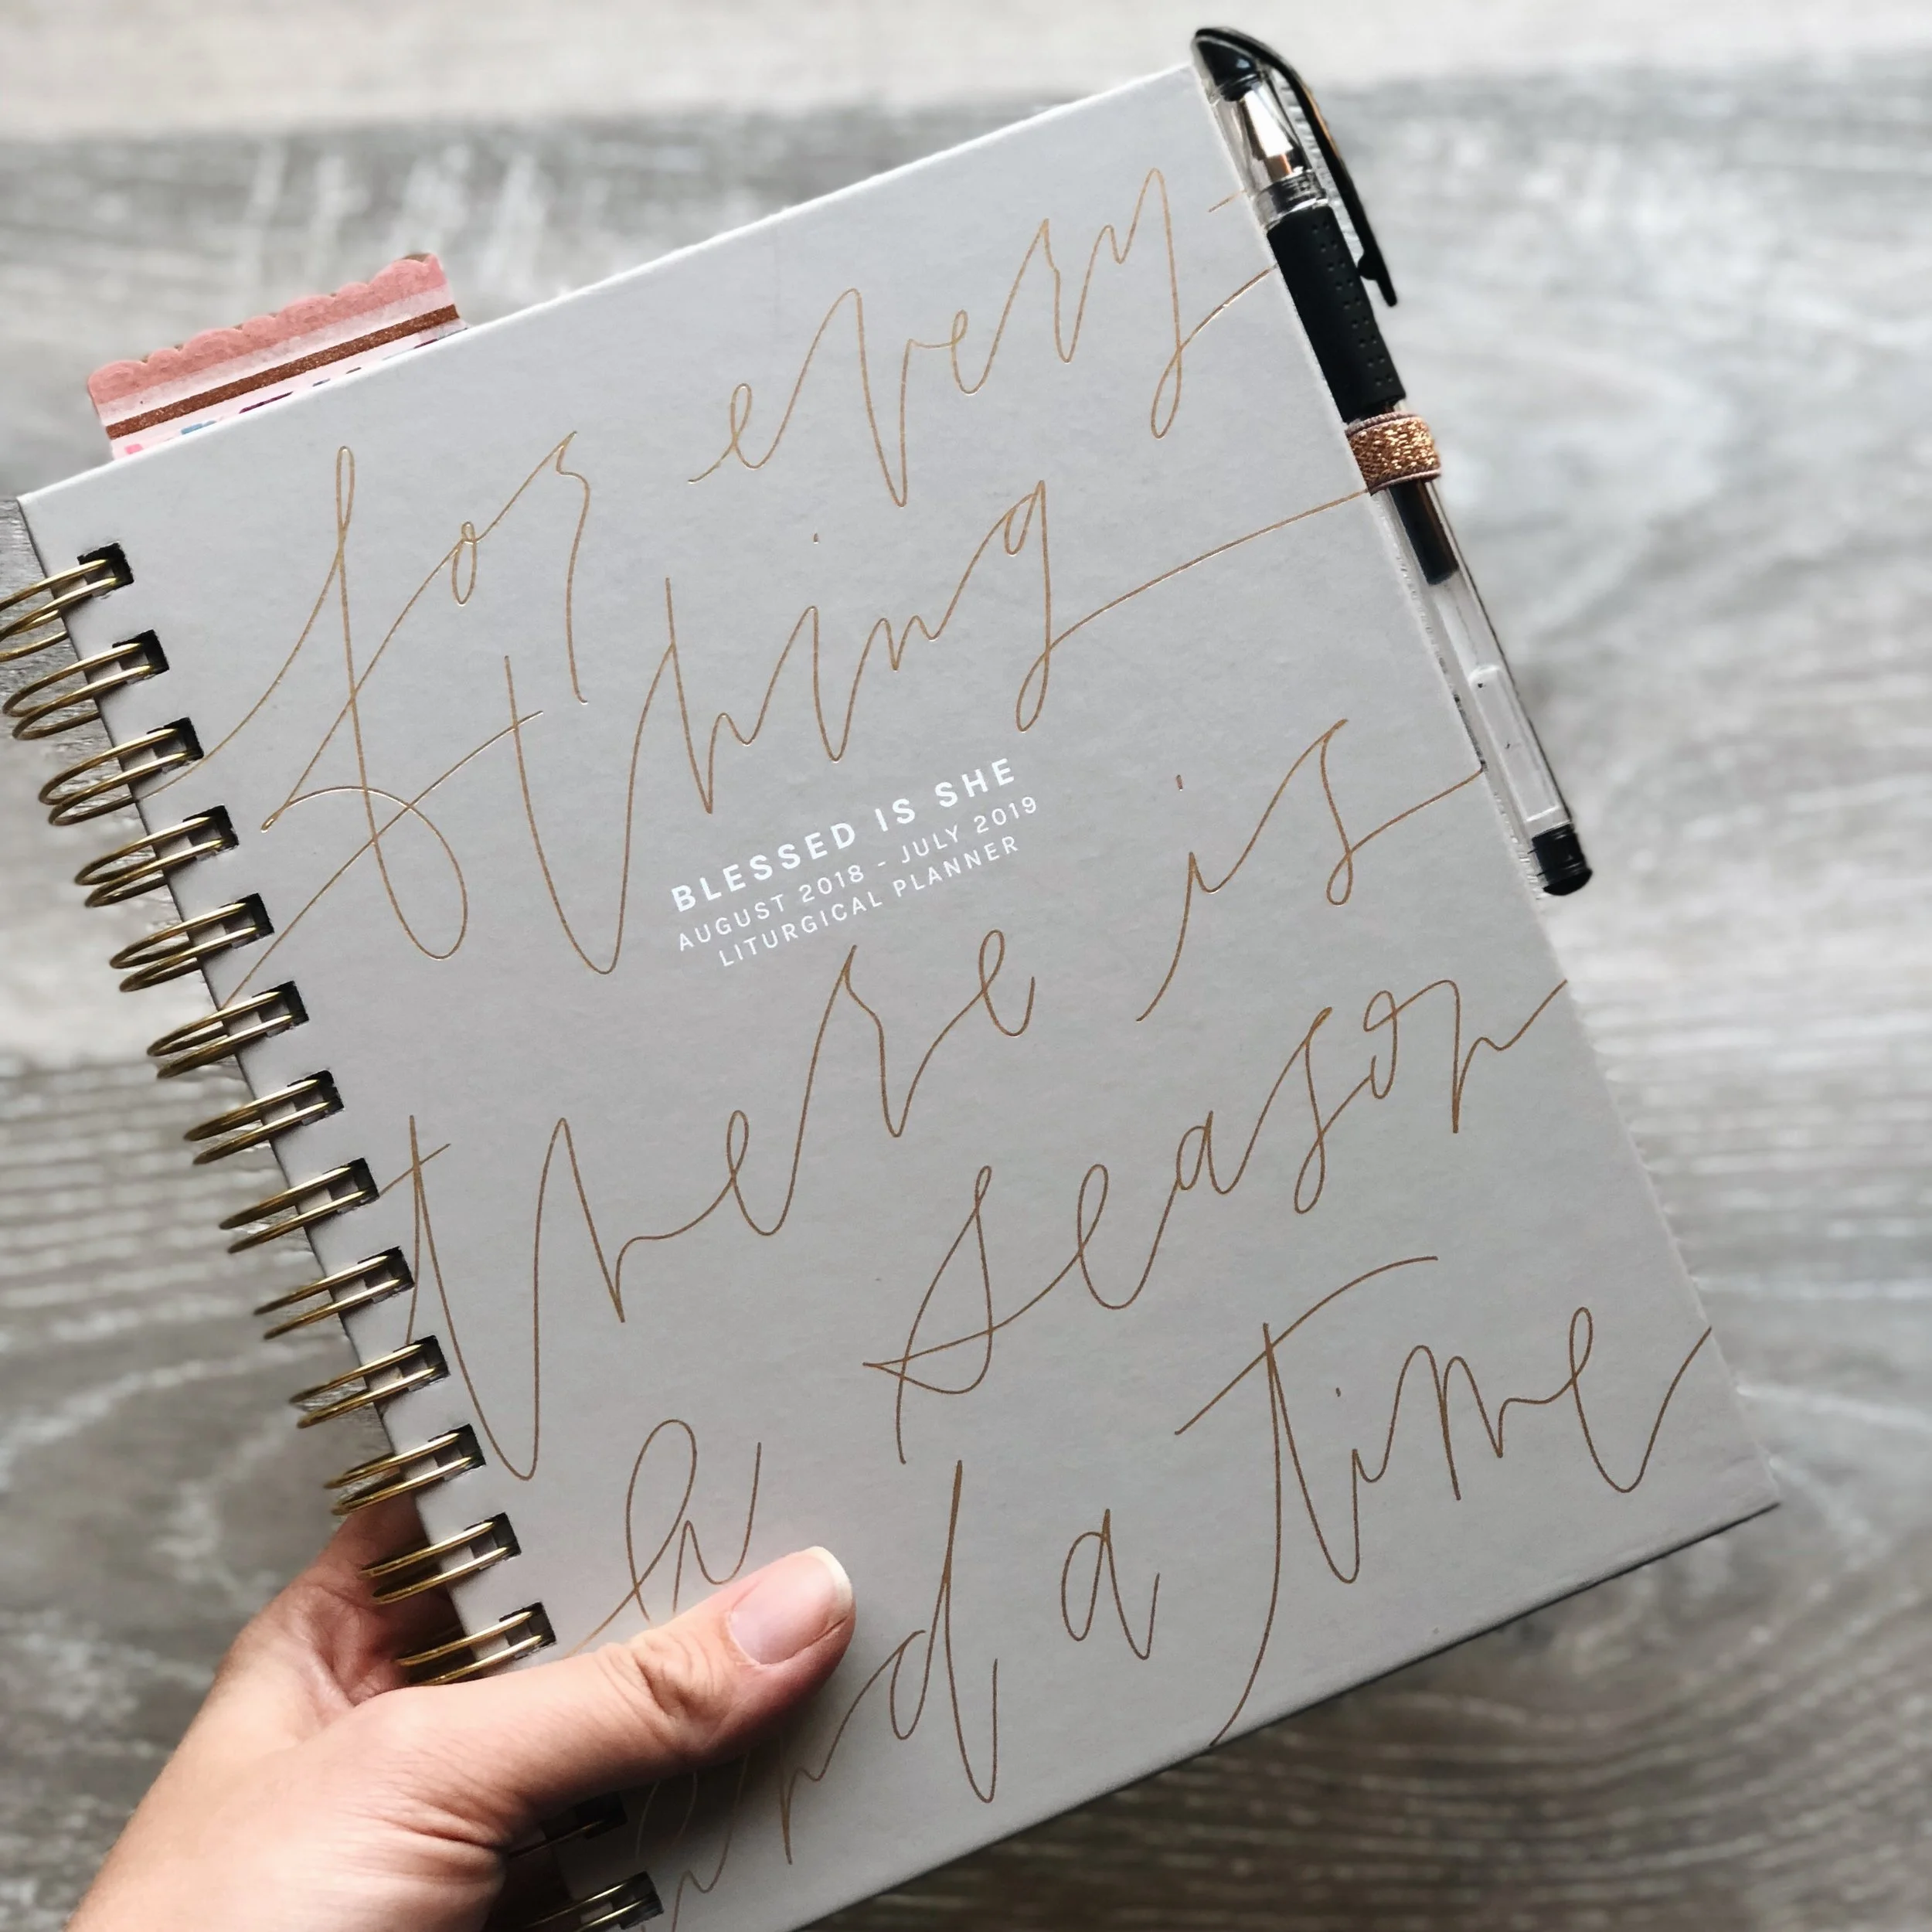 for every
thing
BLESSED IS SHE
AUGUST 2018 - JULY 2019
LITURGICAL PLANNER
there is
a season
and a time